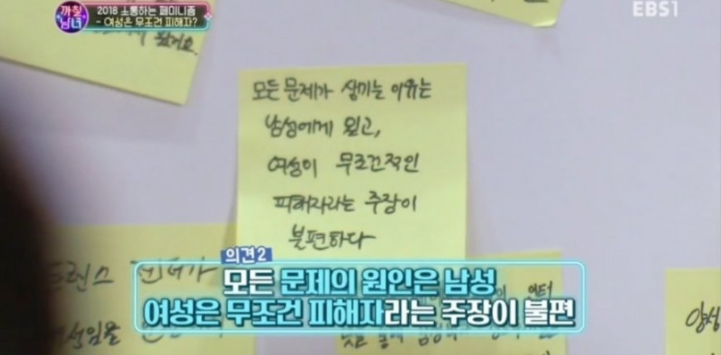 까칠남녀
2018 소통하는 페미니즘
- 여성은 무조건 피해자?
EBS1
모든 문제가 생기는 이유는
남성에게 있고,
여성이 무조건적인
피해자라는 주장이
불편하다
의견2
모든 문제의 원인은 남성
여성은 무조건 피해자라는 주장이 불편